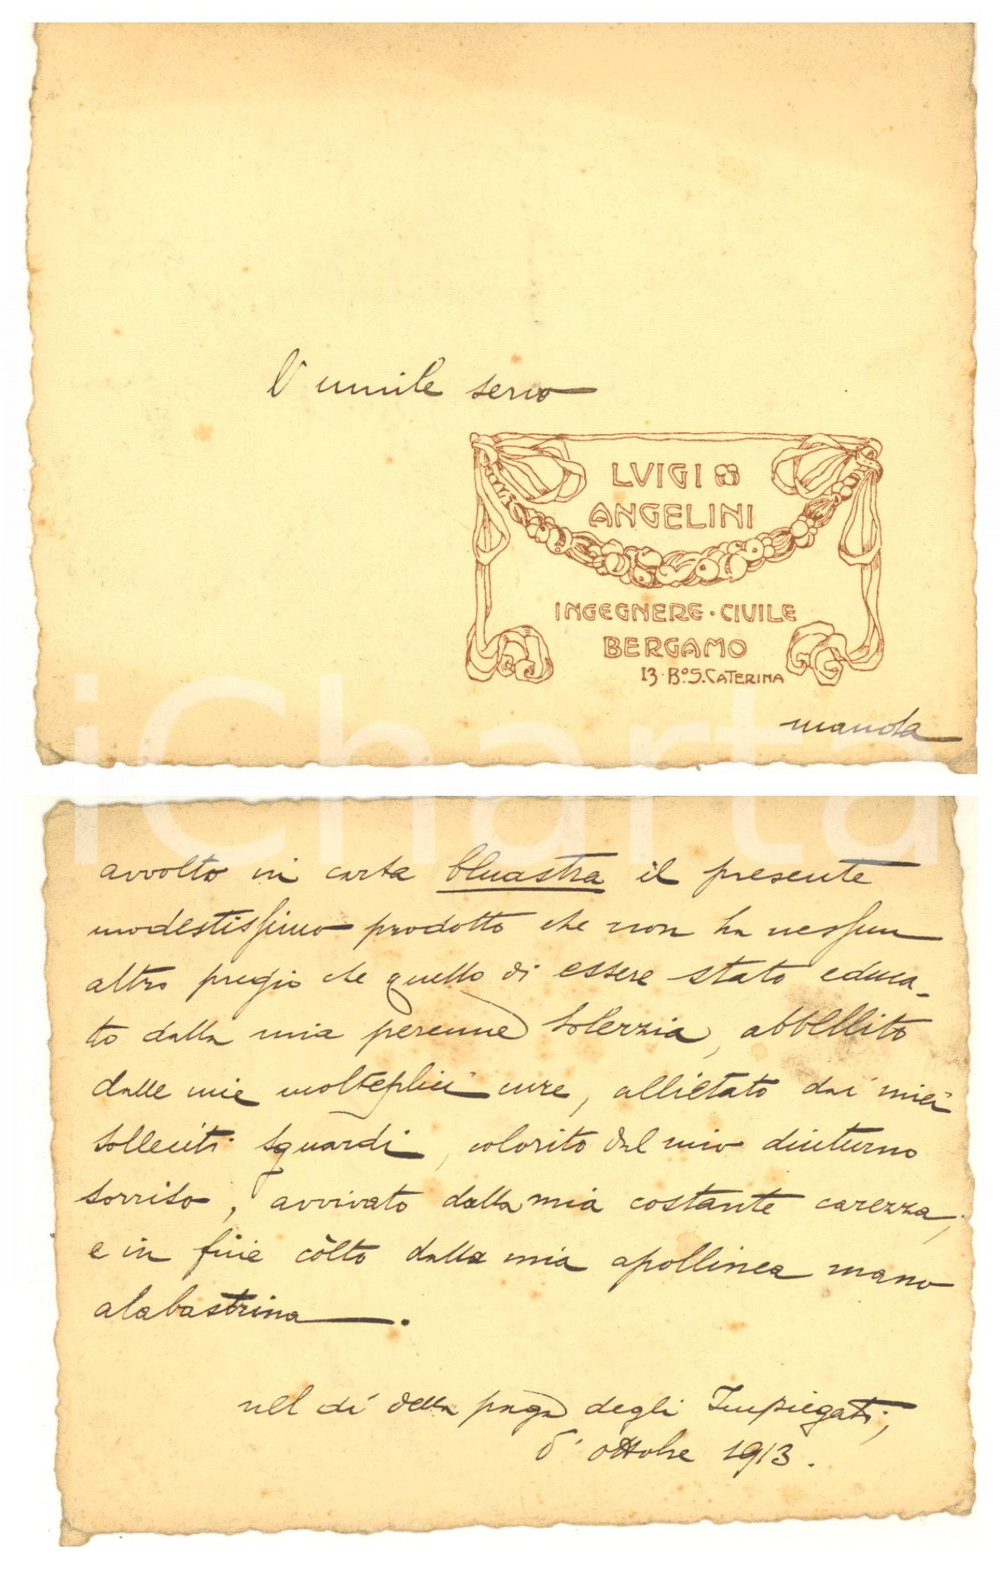 l'umile servo
LVIGI
ANGELINI
INGEGNERE · CIVILE
BERGAMO
13 · Bo. S. CATERINA
manda
iCharta
avvolto in carta bluastra il presente
modestissimo prodotto che non ha nessun
altro pregio che quello di essere stato educa-
to dalla mia perenne solerzia, abbellito
dalle mie molteplici cure, allietato dai miei
solleciti sguardi, colorito dal mio diuturno
sorriso, avvivato dalla mia costante carezza,
e in fine còlto dalla mia apollinea mano
alabastrina.
nel dì della paga degli Impiegati,
d' ottobre 1913.